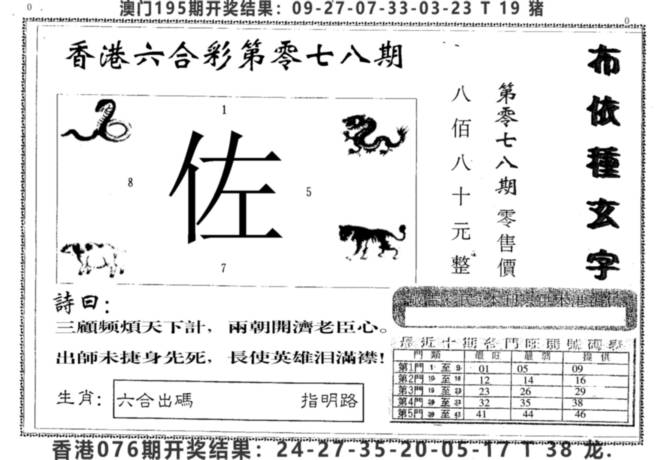 澳门195期开奖结果：09-27-07-33-03-23 T 19 猪
0
0
香港六合彩第零七八期
布依種玄字
第零七八期 零售價
八佰八十元整
1
佐
8
5
7
詩曰：
三顧频煩天下計，兩朝開濟老臣心。
出師未捷身先死，長使英雄泪滿襟!
生肖：
六合出碼 指明路
最近十期各門旺開號碼
門類 提供
第1門 1 至 9 01 05 09
第2門 10 至 18 12 14 16
第3門 至 23 26 29
第4門 至 32 35 38
第5門 至 41 44 46
香港076期开奖结果：24-27-35-20-05-17 T 38 龙.